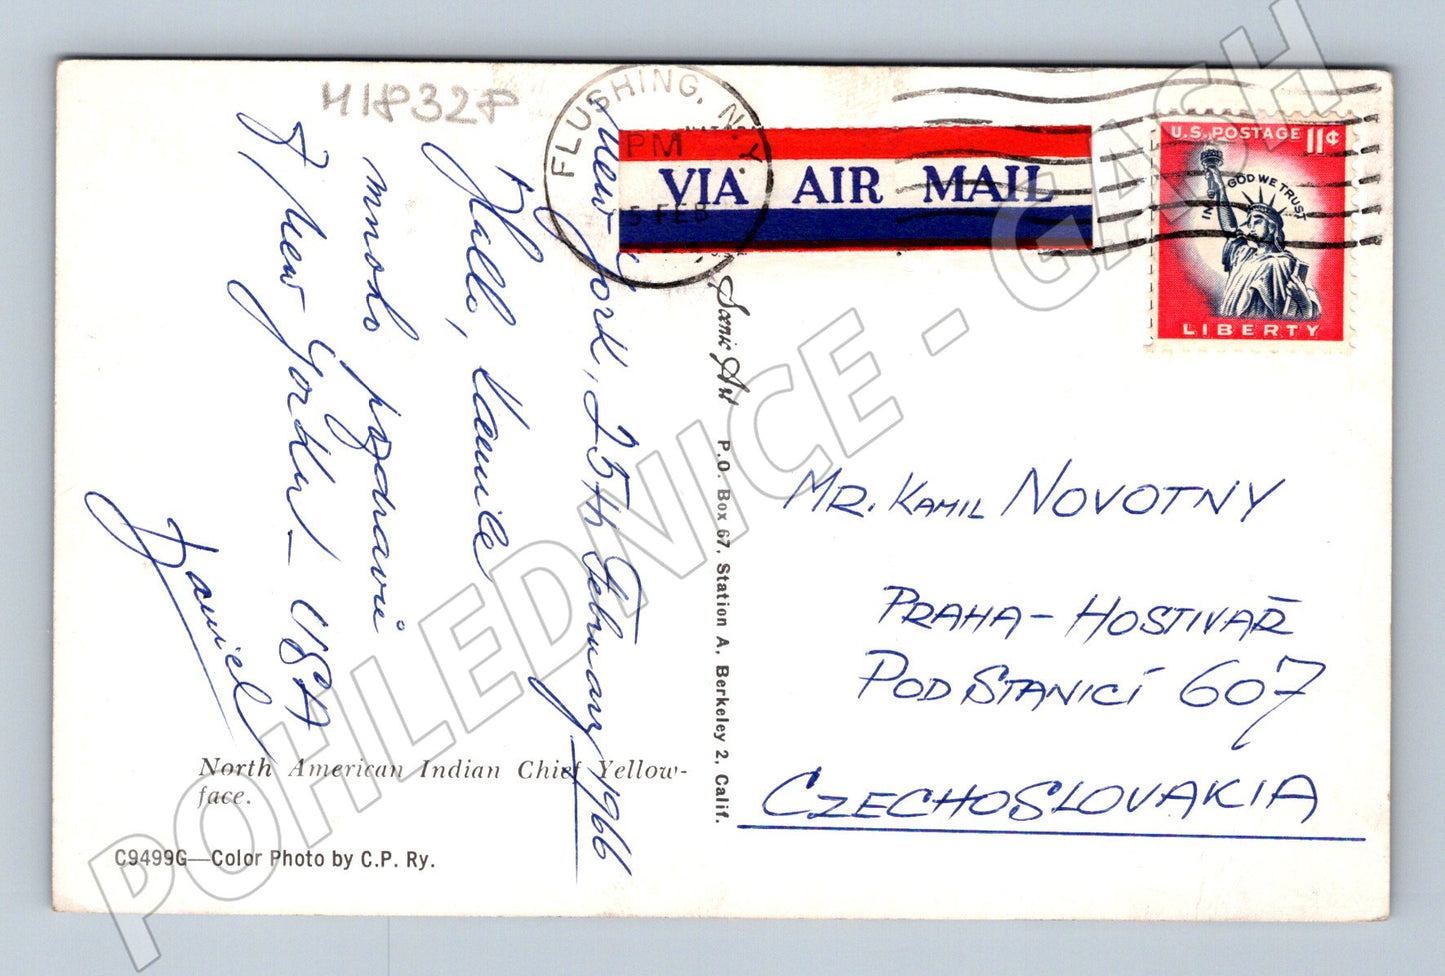 M18328
FLUSHING, N.Y.
PM
5 FEB
VIA AIR MAIL
U.S. POSTAGE 11¢
IN GOD WE TRUST
LIBERTY
New York, 25th February 1966
Hallo, Kamile
mnoho pozdravů
z New Yorku - USA
Daniel
Scenic Art P.O. Box 67, Station A, Berkeley 2, Calif.
MR. KAMIL NOVOTNY
PRAHA - HOSTIVAŘ
POD STANICÍ 607
CZECHOSLOVAKIA
North American Indian Chief Yellow-
face.
C9499G—Color Photo by C.P. Ry.
POHLEDNICE - GASH